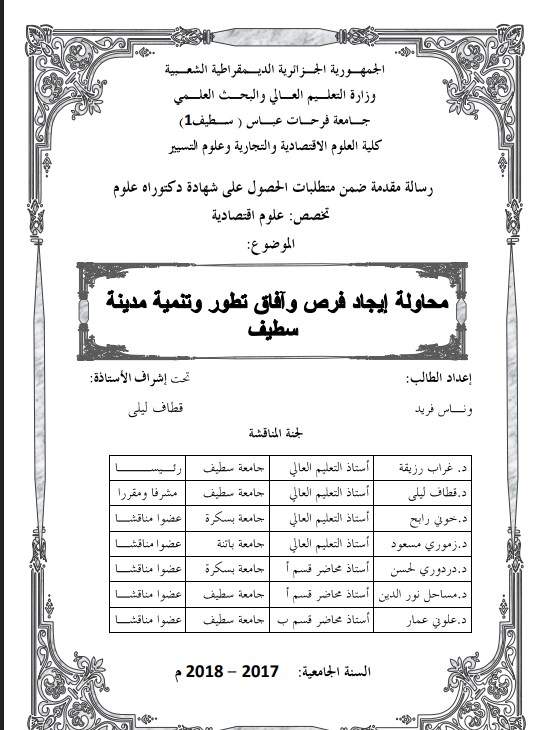 الجمهـورية الجـزائرية الديـمقراطية الشعـبية
وزارة التعلـيم العـالي والبحـث العلـمي
جـامعة فرحـات عبـاس ( سـطيف1)
كلية العلوم الاقتصادية والتجارية وعلوم التسيير
رسالة مقدمة ضمن متطلبات الحصول على شهادة دكتوراه علوم
تخصص: علوم اقتصادية
الموضوع:
محاولة إيجاد فرص وآفاق تطور وتنمية مدينة
سطيف
إعداد الطالب: تحت إشراف الأستاذة:
ونـاس فريد قطاف ليلى
لجنة المناقشة
د. غراب رزيقة أستاذ التعليم العالي جامعة سطيف رئيسـا
د.قطاف ليلى أستاذ التعليم العالي جامعة سطيف مشرفا ومقررا
د.خوني رابح أستاذ التعليم العالي جامعة بسكرة عضوا مناقشـا
د.زموري مسعود أستاذ التعليم العالي جامعة باتنة عضوا مناقشـا
د.دردوري لحسن أستاذ محاضر قسم أ جامعة بسكرة عضوا مناقشـا
د.مساحل نور الدين أستاذ محاضر قسم أ جامعة سطيف عضوا مناقشـا
د.علوني عمار أستاذ محاضر قسم ب جامعة سطيف عضوا مناقشـا
السنة الجامعية: 2017 – 2018 م